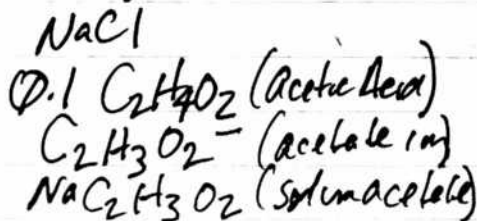 NaCl
0.1 C2H4O2 (acetic Acid)
C2H3O2⁻ (acetate ion)
NaC2H3O2 (sodium acetate)